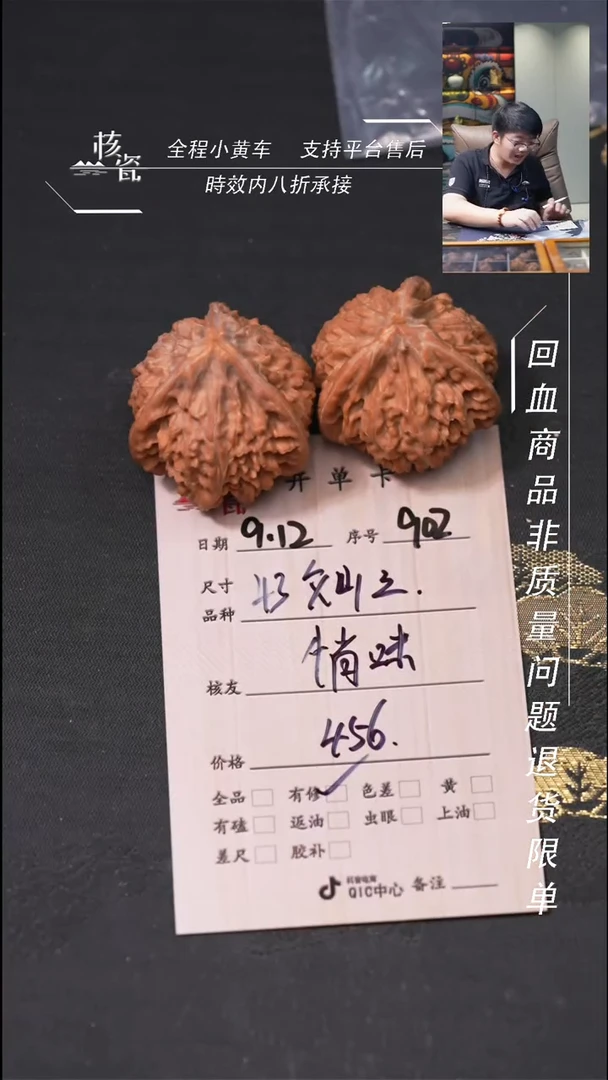 核瓷
全程小黄车 支持平台售后
時效内八折承接
回血商品非质量问题退货限单
开单卡
日期 9.12 序号 902
尺寸
品种 43
核友 悄味
价格 456.
全品 有修 ✓ 色差 黄
有磕 返油 虫眼 上油
差尺 胶补
QIC中心 备注